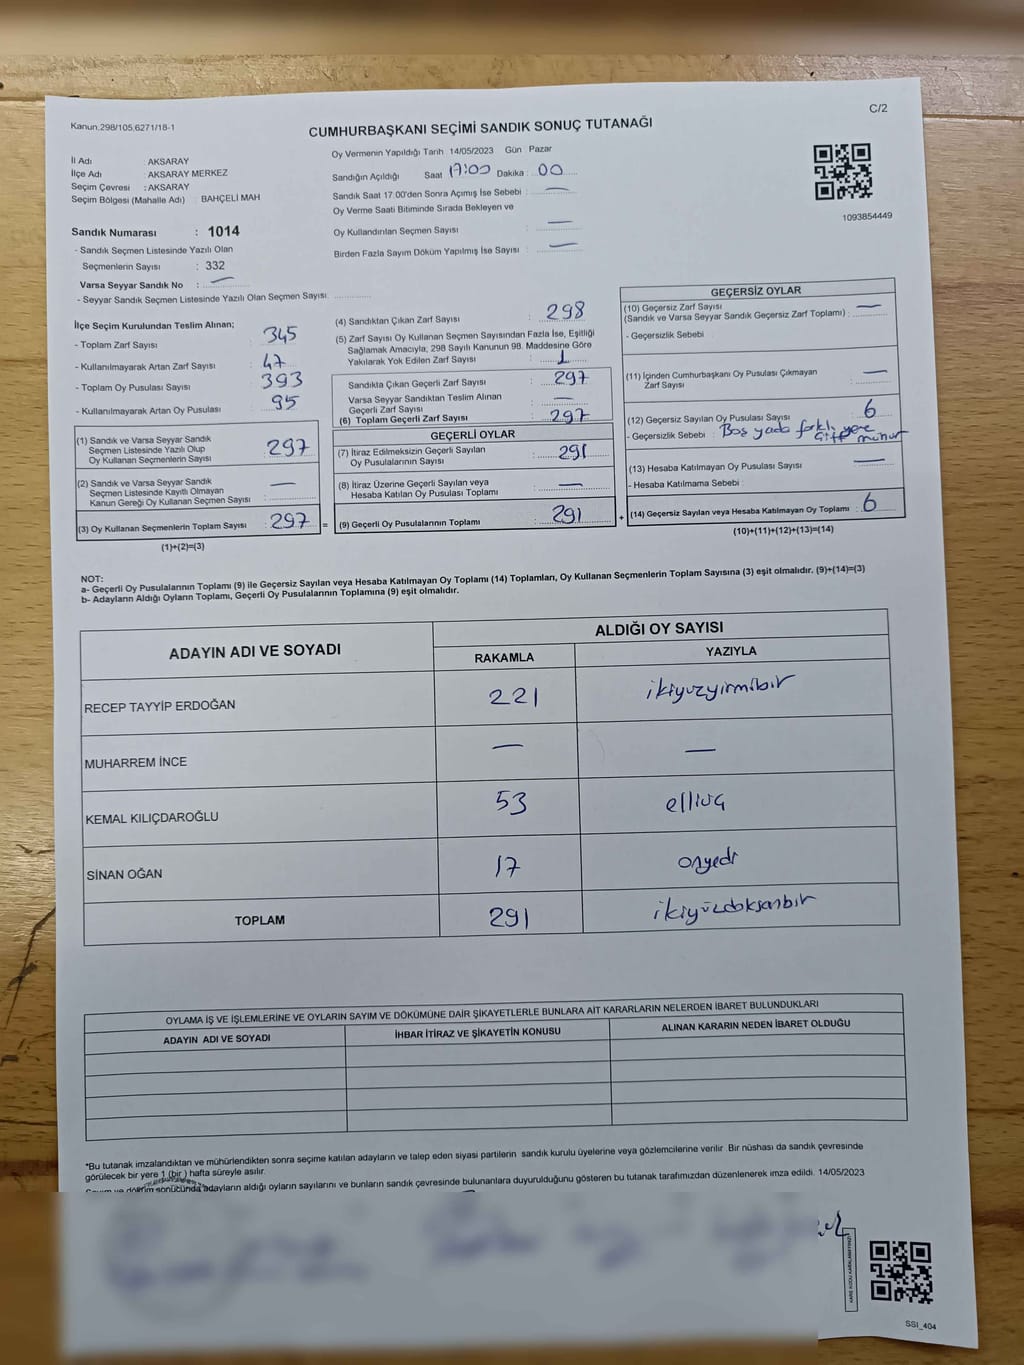 C/2
Kanun:298/105,6271/18-1
CUMHURBAŞKANI SEÇİMİ SANDIK SONUÇ TUTANAĞI
İl Adı : AKSARAY
İlçe Adı : AKSARAY MERKEZ
Seçim Çevresi : AKSARAY
Seçim Bölgesi (Mahalle Adı) BAHÇELİ MAH
Sandık Numarası : 1014
- Sandık Seçmen Listesinde Yazılı Olan
Seçmenlerin Sayısı : 332
Varsa Seyyar Sandık No : —
- Seyyar Sandık Seçmen Listesinde Yazılı Olan Seçmen Sayısı:
Oy Vermenin Yapıldığı Tarih 14/05/2023 Gün : Pazar
Sandığın Açıldığı Saat 17:00 Dakika : 00
Sandık Saat 17.00'den Sonra Açımış İse Sebebi : —
Oy Verme Saati Bitiminde Sırada Bekleyen ve
Oy Kullandırılan Seçmen Sayısı : —
Birden Fazla Sayım Döküm Yapılmış İse Sayısı : —
1093854449
İlçe Seçim Kurulundan Teslim Alınan;
- Toplam Zarf Sayısı : 345
- Kullanılmayarak Artan Zarf Sayısı : 47
- Toplam Oy Pusulası Sayısı : 393
- Kullanılmayarak Artan Oy Pusulası : 95
(1) Sandık ve Varsa Seyyar Sandık
Seçmen Listesinde Yazılı Olup
Oy Kullanan Seçmenlerin Sayısı : 297
(2) Sandık ve Varsa Seyyar Sandık
Seçmen Listesinde Kayıtlı Olmayan
Kanun Gereği Oy Kullanan Seçmen Sayısı : —
(3) Oy Kullanan Seçmenlerin Toplam Sayısı : 297 =
(1)+(2)=(3)
(4) Sandıktan Çıkan Zarf Sayısı : 298
(5) Zarf Sayısı Oy Kullanan Seçmen Sayısından Fazla İse, Eşitliği
Sağlamak Amacıyla, 298 Sayılı Kanunun 98. Maddesine Göre
Yakılarak Yok Edilen Zarf Sayısı : 1
Sandıkta Çıkan Geçerli Zarf Sayısı : 297
Varsa Seyyar Sandıktan Teslim Alınan
Geçerli Zarf Sayısı : —
(6) Toplam Geçerli Zarf Sayısı : 297
GEÇERLİ OYLAR
(7) İtiraz Edilmeksizin Geçerli Sayılan
Oy Pusulalarının Sayısı : 291
(8) İtiraz Üzerine Geçerli Sayılan veya
Hesaba Katılan Oy Pusulası Toplamı : —
(9) Geçerli Oy Pusulalarının Toplamı : 291 +
GEÇERSİZ OYLAR
(10) Geçersiz Zarf Sayısı
(Sandık ve Varsa Seyyar Sandık Geçersiz Zarf Toplamı) : —
- Geçersizlik Sebebi
(11) İçinden Cumhurbaşkanı Oy Pusulası Çıkmayan
Zarf Sayısı : —
(12) Geçersiz Sayılan Oy Pusulası Sayısı : 6
- Geçersizlik Sebebi : Boş yada farklı yere
çift mühür
(13) Hesaba Katılmayan Oy Pusulası Sayısı : —
- Hesaba Katılmama Sebebi :
(14) Geçersiz Sayılan veya Hesaba Katılmayan Oy Toplamı : 6
(10)+(11)+(12)+(13)=(14)
NOT:
a- Geçerli Oy Pusulalarının Toplamı (9) ile Geçersiz Sayılan veya Hesaba Katılmayan Oy Toplamı (14) Toplamları, Oy Kullanan Seçmenlerin Toplam Sayısına (3) eşit olmalıdır. (9)+(14)=(3)
b- Adayların Aldığı Oyların Toplamı, Geçerli Oy Pusulalarının Toplamına (9) eşit olmalıdır.
ADAYIN ADI VE SOYADI ALDIĞI OY SAYISI
RAKAMLA YAZIYLA
RECEP TAYYİP ERDOĞAN 221 ikiyüzyirmibir
MUHARREM İNCE — —
KEMAL KILIÇDAROĞLU 53 elliüç
SİNAN OĞAN 17 onyedi
TOPLAM 291 ikiyüzdoksanbir
OYLAMA İŞ VE İŞLEMLERİNE VE OYLARIN SAYIM VE DÖKÜMÜNE DAİR ŞİKAYETLERLE BUNLARA AİT KARARLARIN NELERDEN İBARET BULUNDUKLARI
ADAYIN ADI VE SOYADI İHBAR İTİRAZ VE ŞİKAYETİN KONUSU ALINAN KARARIN NEDEN İBARET OLDUĞU
*Bu tutanak imzalandıktan ve mühürlendikten sonra seçime katılan adayların ve talep eden siyasi partilerin sandık kurulu üyelerine veya gözlemcilerine verilir. Bir nüshası da sandık çevresinde
görülecek bir yere 1 (bir ) hafta süreyle asılır.
Sayım ve döküm sonucunda adayların aldığı oyların sayılarını ve bunların sandık çevresinde bulunanlara duyurulduğunu gösteren bu tutanak tarafımızdan düzenlenerek imza edildi. 14/05/2023
SSI_404